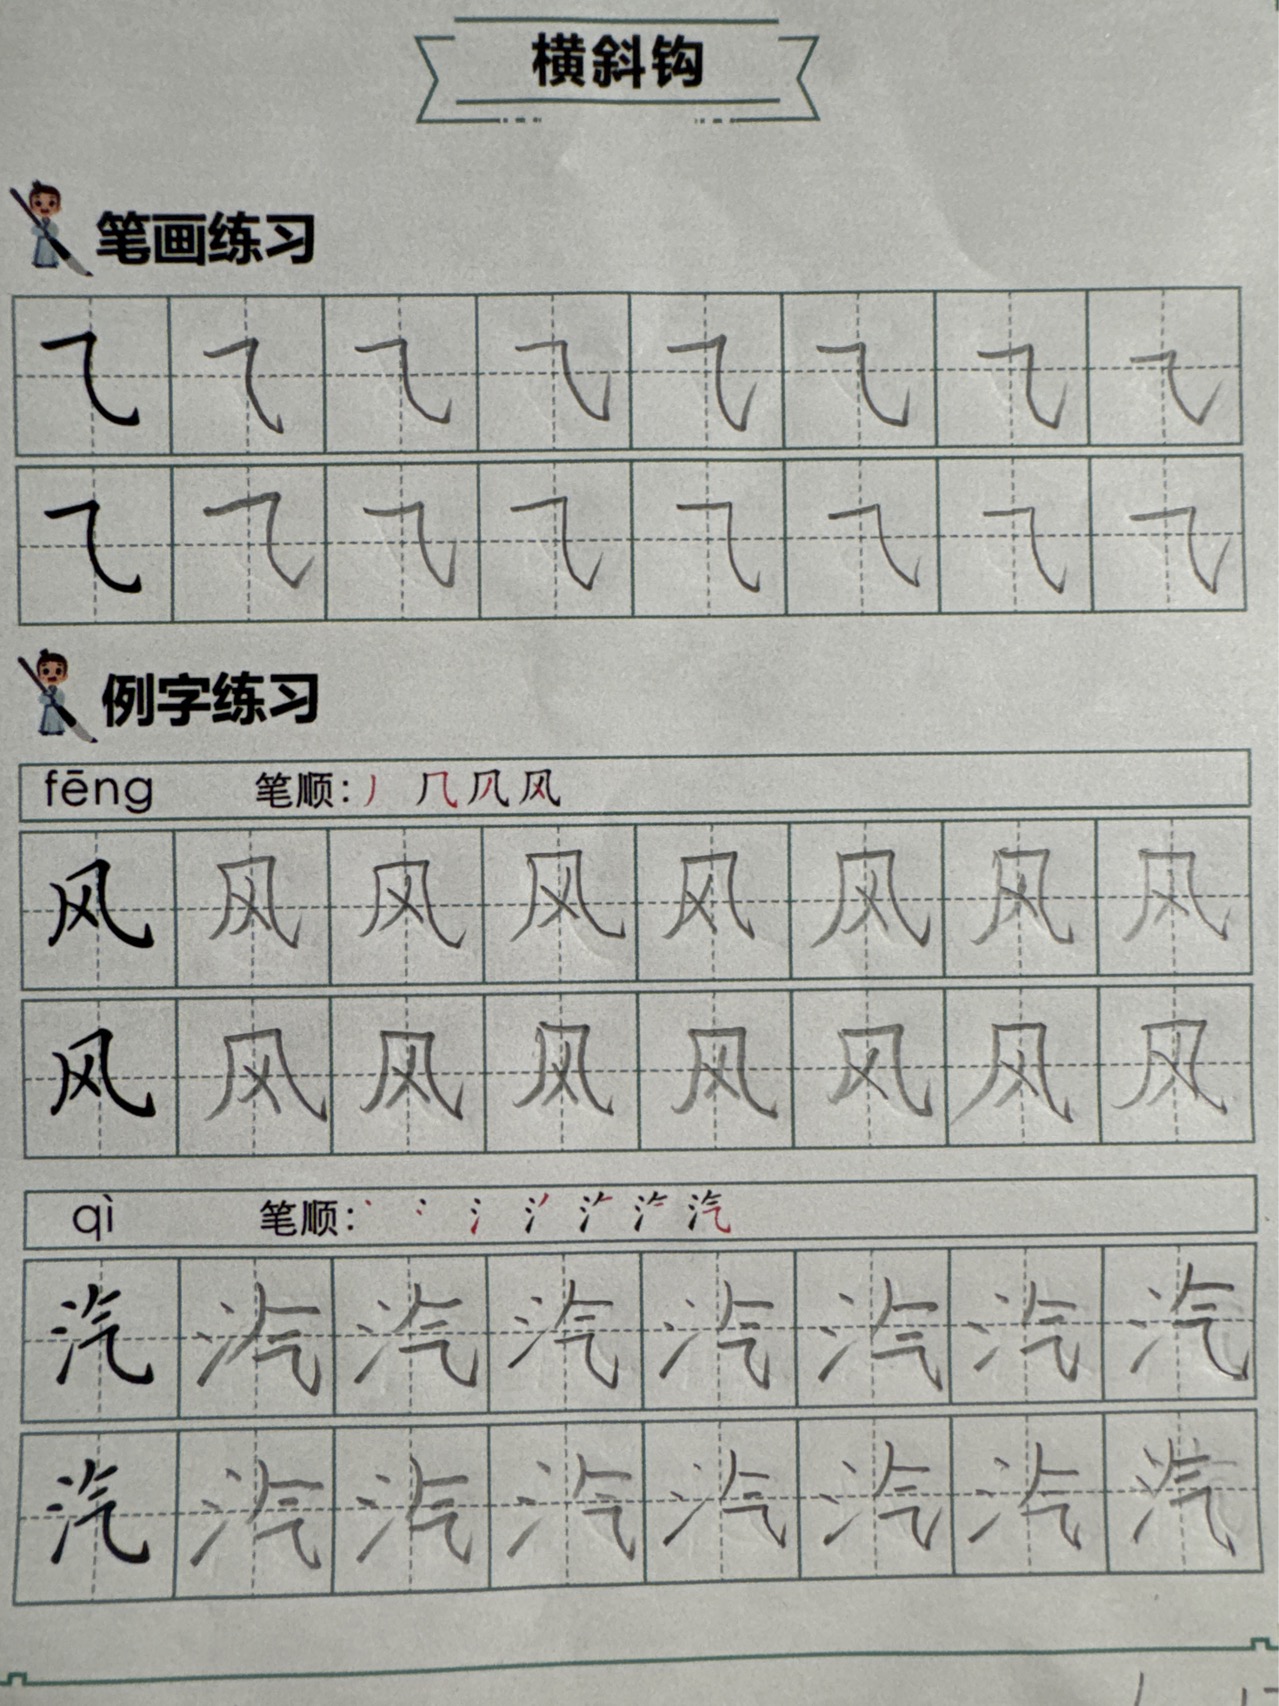 横斜钩
笔画练习
⺄ ⺄ ⺄ ⺄ ⺄ ⺄ ⺄ ⺄
⺄ ⺄ ⺄ ⺄ ⺄ ⺄ ⺄ ⺄
例字练习
fēng 笔顺：丿 几 风
风 风 风 风 风 风 风 风
风 风 风 风 风 风 风 风
qì 笔顺：丶 氵 汽
汽 汽 汽 汽 汽 汽 汽 汽
汽 汽 汽 汽 汽 汽 汽 汽